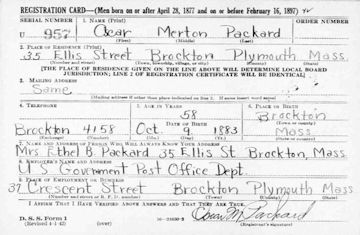 REGISTRATION CARD—(Men born on or after April 28, 1877 and on or before February 16, 1897)
SERIAL NUMBER 1. NAME (Print) ORDER NUMBER
U 957 Oscar Merton Packard
(First) (Middle) (Last)
2. PLACE OF RESIDENCE (Print)
35 Ellis Street Brockton Plymouth Mass.
(Number and street) (Town, township, village, or city) (County) (State)
[THE PLACE OF RESIDENCE GIVEN ON THE LINE ABOVE WILL DETERMINE LOCAL BOARD
JURISDICTION; LINE 2 OF REGISTRATION CERTIFICATE WILL BE IDENTICAL]
3. MAILING ADDRESS
Same
[Mailing address if other than place indicated on line 2. If same insert word same]
4. TELEPHONE 5. AGE IN YEARS 6. PLACE OF BIRTH
58 Brockton
DATE OF BIRTH (Town or county)
Brockton 4158 Oct. 9. 1883 Mass
(Exchange) (Number) (Mo.) (Day) (Yr.) (State or country)
7. NAME AND ADDRESS OF PERSON WHO WILL ALWAYS KNOW YOUR ADDRESS
Mrs. Ethel B. Packard 35 Ellis St. Brockton, Mass.
8. EMPLOYER'S NAME AND ADDRESS
U S Government Post Office Dept.
9. PLACE OF EMPLOYMENT OR BUSINESS
37 Crescent Street Brockton Plymouth Mass
(Number and street or R. F. D. number) (Town) (County) (State)
I AFFIRM THAT I HAVE VERIFIED ABOVE ANSWERS AND THAT THEY ARE TRUE.
D. S. S. Form 1
(Revised 4-1-42) (over) Oscar M Packard
(Registrant's signature)